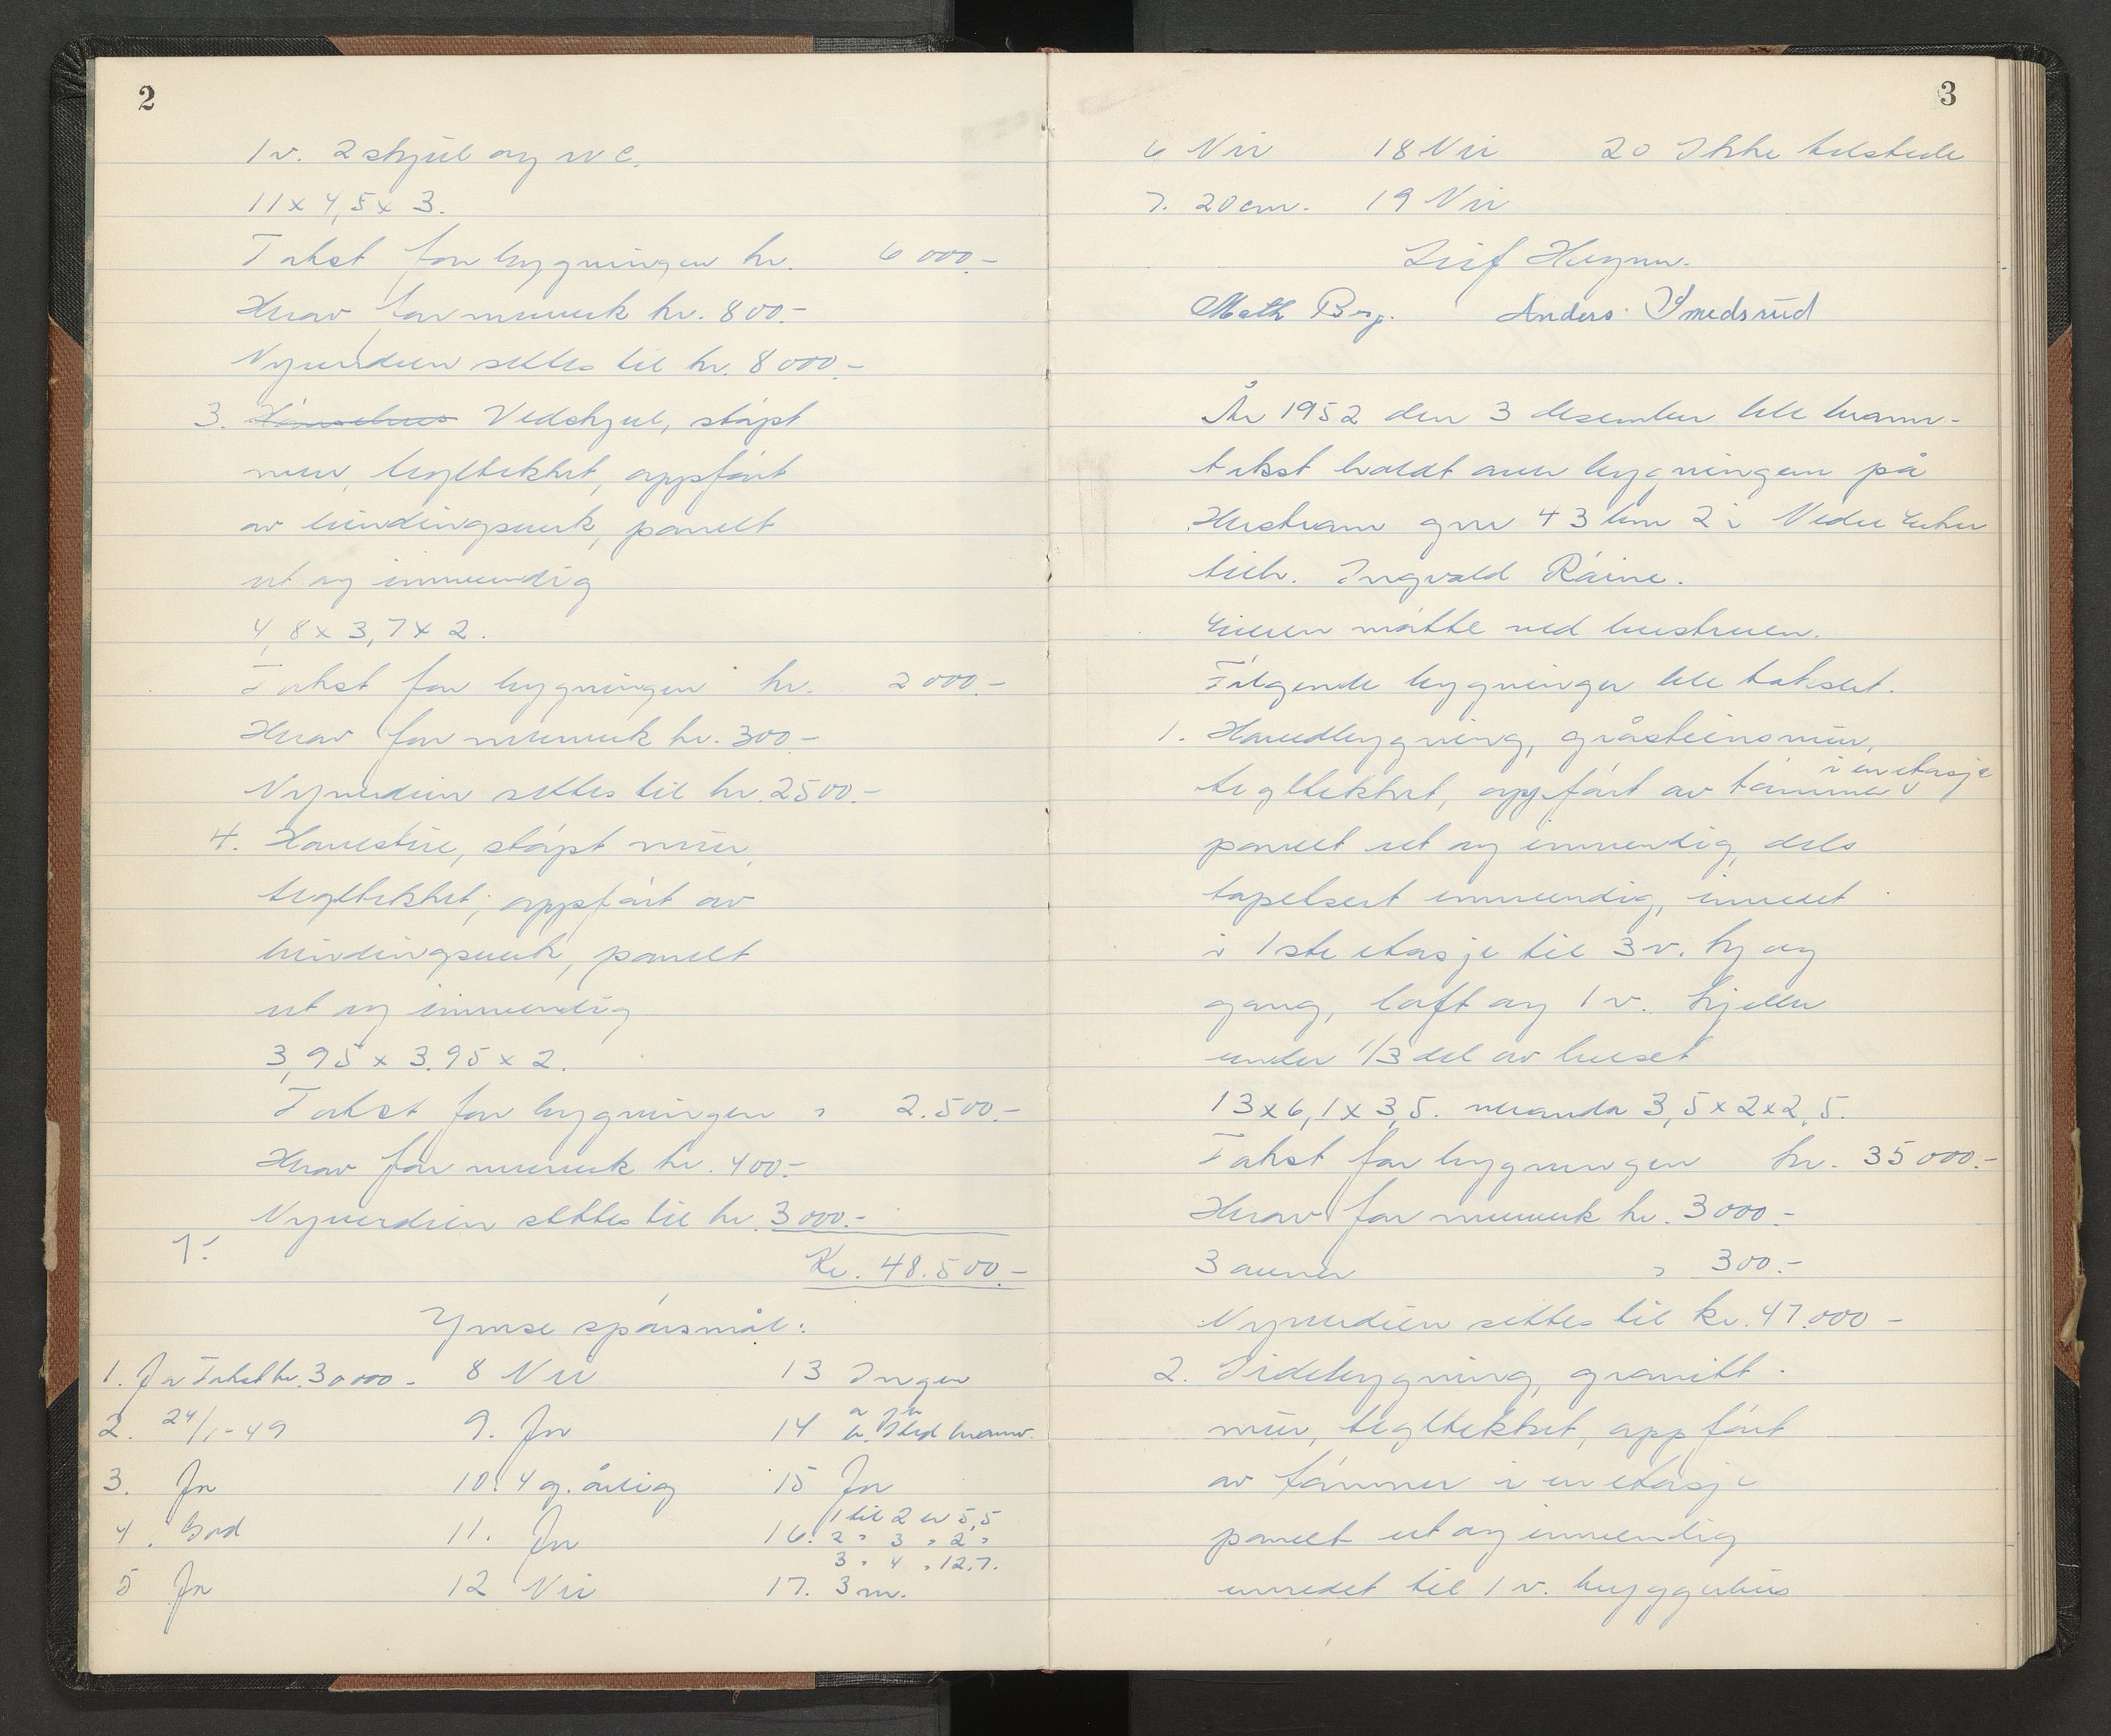 2
1 v. 2 skjul og W C.
11 x 4,5 x 3.
Takst for bygningen kr. 6 000.-
Herav for murverk kr. 800.-
Nyverdien settes til kr. 8 000.-
3. Vedskjul, støpt
mur, tegltekket, oppført
av bindingsverk, panelt
ut og innvendig
4,8 x 3,7 x 2.
Takst for bygningen kr. 2 000.-
Herav for murverk kr. 300.-
Nyverdien settes til kr. 2500.-
4. Havestue, støpt mur,
tegltekket, oppført av
bindingsverk, panelt
ut og innvendig
3,95 x 3.95 x 2.
Takst for bygningen " 2.500.-
Herav for murverk kr. 400.-
Nyverdien settes til kr. 3 000.-
Kr. 48.500.-
Ymse spørsmål:
1. Ja Takst kr. 30 000.- 8 Nei 13 Ingen
2. 24/1-49 9. Ja 14 a Ja b. Sted brannv.
3. Ja 10. 4 g. årlig 15 Ja
4. God 11. Ja 16. 1 til 2 er 5,5
2 " 3 " 2 "
3 " 4 " 12,7.
5 Ja 12 Nei 17. 3 m.
3
6 Nei 18 Nei 20 Ikke tilstede
7. 20 cm. 19 Nei
Leif Haugen.
Math Berg. Anders Smedsrud
År 1952 den 3 desember ble brann-
takst holdt over bygningen på
gnr 43 bnr 2 i Nedre Eiker
tilh. Ingvald
Eieren møtte ved hustruen.
Følgende bygninger ble taksert.
1. Hovedbygning, gråsteinsmur,
tegltekket, oppført av tømmer i en etasje
panelt ut og innvendig, dels
tapetsert innvendig, innredet
i 1ste etasje til 3 v. kj og
gang, loft og 1 v. kjeller
under 1/3 del av huset
13 x 6,1 x 3,5. veranda 3,5 x 2 x 2,5.
Takst for bygningen kr. 35 000.-
Herav for murverk kr. 3 000.-
3 ovner " 300.-
Nyverdien settes til kr. 47.000-
2. Sidebygning, granitt
mur, tegltekket, oppført
av tømmer i en etasje
panelt ut og innvendig
innredet til 1 v. bryggerhus